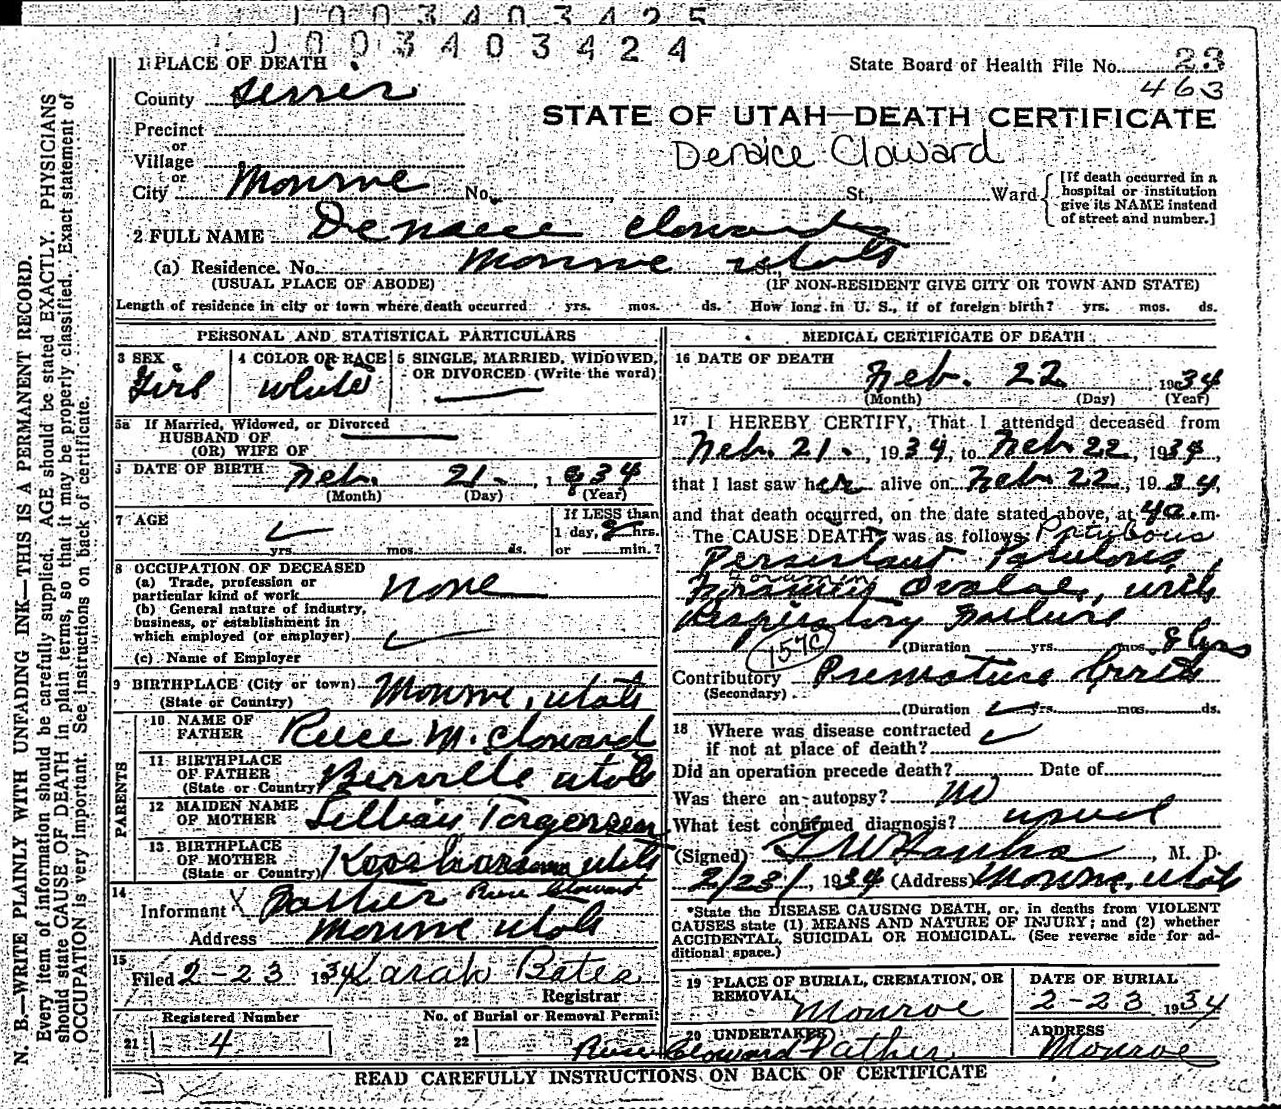 1003403425
1003403424
1 PLACE OF DEATH
State Board of Health File No. 23
463
County Sevier
STATE OF UTAH—DEATH CERTIFICATE
Precinct
or
Village
Denaice Cloward
or
City Monroe No. St., Ward
[If death occurred in a
hospital or institution
give its NAME instead
of street and number.]
2 FULL NAME Denaice Cloward
(a) Residence. No. Monroe Utah St.,
(USUAL PLACE OF ABODE) (IF NON-RESIDENT GIVE CITY OR TOWN AND STATE)
Length of residence in city or town where death occurred yrs. mos. ds. How long in U. S., if of foreign birth? yrs. mos. ds.
PERSONAL AND STATISTICAL PARTICULARS
3 SEX 4 COLOR OR RACE 5 SINGLE, MARRIED, WIDOWED,
OR DIVORCED (Write the word)
Girl white
5a If Married, Widowed, or Divorced
HUSBAND OF
(OR) WIFE OF
DATE OF BIRTH Feb. 21, 1934
(Month) (Day) (Year)
7 AGE If LESS than
1 day, hrs.
yrs. mos. ds. or min.?
8 OCCUPATION OF DECEASED
(a) Trade, profession or
particular kind of work none
(b) General nature of industry,
business, or establishment in
which employed (or employer)
(c) Name of Employer
9 BIRTHPLACE (City or town) Monroe, Utah
(State or Country)
PARENTS
10 NAME OF
FATHER Reece M. Cloward
11 BIRTHPLACE
OF FATHER Utah
(State or Country)
12 MAIDEN NAME
OF MOTHER Lillian Torgensen
13 BIRTHPLACE
OF MOTHER Koosharem Utah
(State or Country)
14
Informant X Father Reese Cloward
Address Monroe Utah
15
Filed 2-23 1934 Sarah Bates
Registrar
Registered Number No. of Burial or Removal Permit
21 4 22
MEDICAL CERTIFICATE OF DEATH
16 DATE OF DEATH
Feb. 22, 1934
(Month) (Day) (Year)
17 I HEREBY CERTIFY, That I attended deceased from
Feb. 21, 1934, to Feb 22, 1934,
that I last saw her alive on Feb 22, 1934,
and that death occurred, on the date stated above, at 4 a.m.
The CAUSE DEATH* was as follows:
Persistant Patulous
Foramen Ovalae, with
Respiratory Failure
157c (Duration yrs. mos. 9 hrs
Contributory Premature birth
(Secondary)
(Duration yrs. mos. ds.
18 Where was disease contracted
if not at place of death?
Did an operation precede death? Date of
Was there an autopsy? no
What test confirmed diagnosis? usual
(Signed) , M. D.
2/23/ 1934 (Address) Monroe, Utah
*State the DISEASE CAUSING DEATH, or, in deaths from VIOLENT
CAUSES state (1) MEANS AND NATURE OF INJURY; and (2) whether
ACCIDENTAL, SUICIDAL OR HOMICIDAL. (See reverse side for ad-
ditional space.)
19 PLACE OF BURIAL, CREMATION, OR
REMOVAL Monroe
DATE OF BURIAL
2-23 1934
20 UNDERTAKER
Reese Cloward Father
ADDRESS
Monroe
READ CAREFULLY INSTRUCTIONS ON BACK OF CERTIFICATE
N. B.—WRITE PLAINLY WITH UNFADING INK—THIS IS A PERMANENT RECORD.
Every item of information should be carefully supplied. AGE should be stated EXACTLY. PHYSICIANS
should state CAUSE OF DEATH in plain terms, so that it may be properly classified. Exact statement of
OCCUPATION is very important. See instructions on back of certificate.